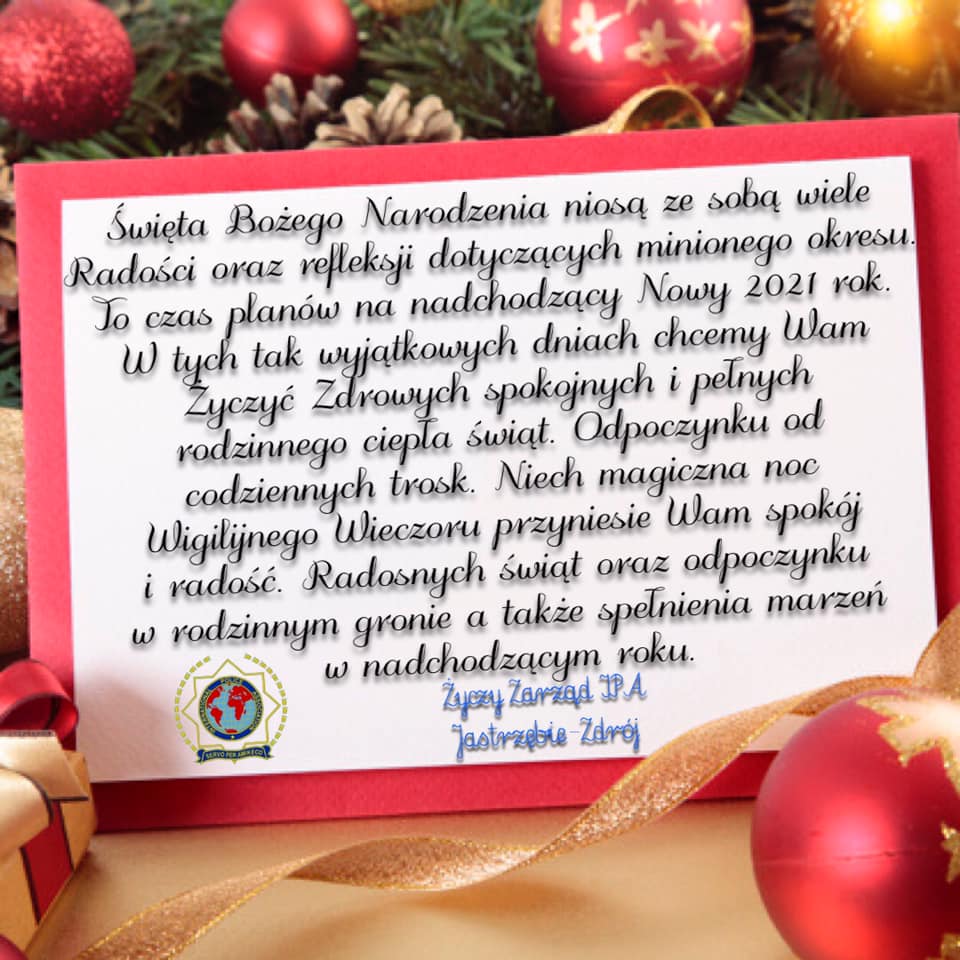 Święta Bożego Narodzenia niosą ze sobą wiele
Radości oraz refleksji dotyczących minionego okresu.
To czas planów na nadchodzący Nowy 2021 rok.
W tych tak wyjątkowych dniach chcemy Wam
Życzyć Zdrowych spokojnych i pełnych
rodzinnego ciepła świąt. Odpoczynku od
codziennych trosk. Niech magiczna noc
Wigilijnego Wieczoru przyniesie Wam spokój
i radość. Radosnych świąt oraz odpoczynku
w rodzinnym gronie a także spełnienia marzeń
w nadchodzącym roku.
Życzy Zarząd IPA
Jastrzębie-Zdrój
INTERNATIONAL POLICE ASSOCIATION
SERVO PER AMIKECO